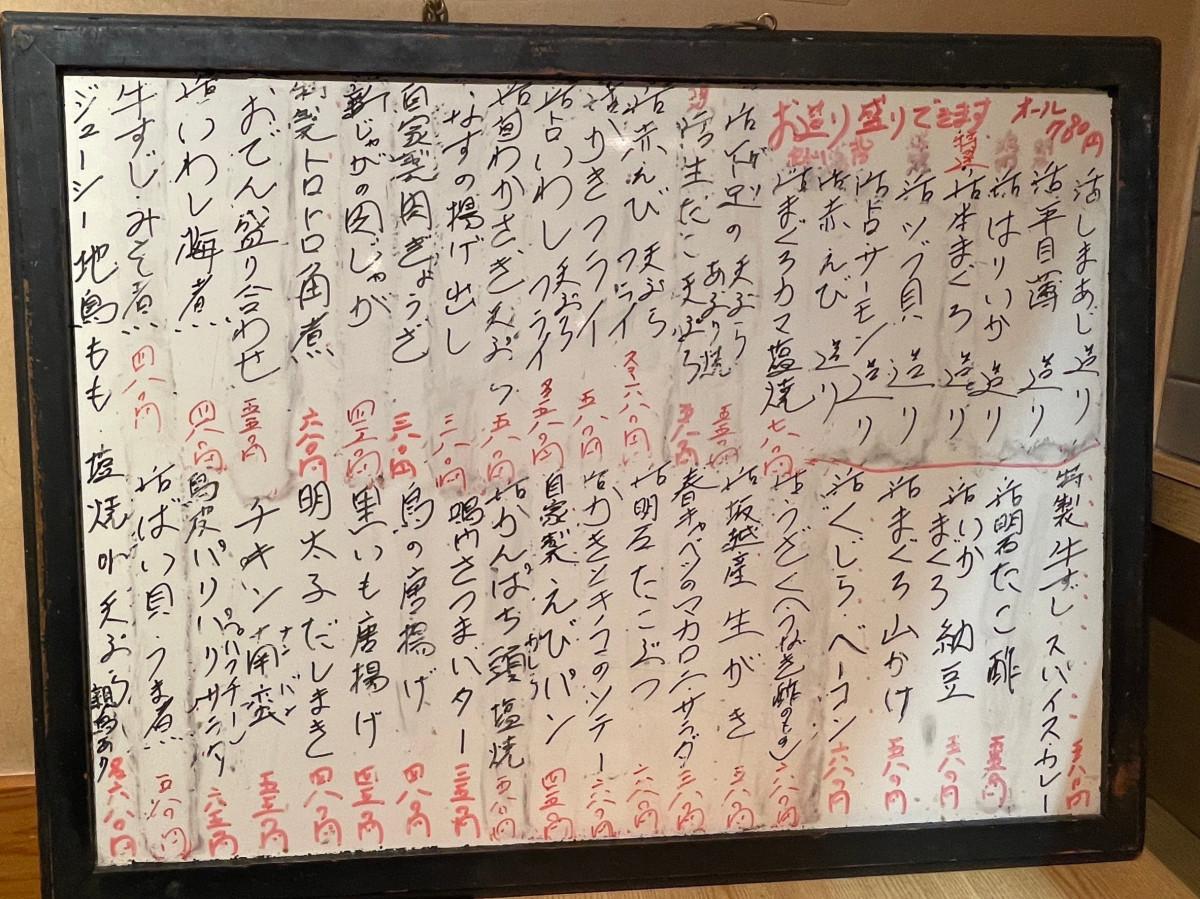 お造り盛りできます
オール
780円
活しまあじ 造り
活平目薄 造り
活はりいか 造り
特選
活本まぐろ 造り
活ツブ貝 造り
活〆サーモン 造り
活赤えび 造り
活まぐろカマ塩焼 七八〇円
活ゲソの天ぷら あぶり焼 五五〇円
活生だこ天ぷら 五八〇円
活赤えび 天ぷら フライ 六八〇円
活かきフライ 五八〇円
活〆いわし 天ぷら フライ 各五八〇円
活白わかさぎ天ぷら 五八〇円
なすの揚げ出し 三八〇円
自家製肉ぎょうざ 三八〇円
新じゃがの肉じゃが 四五〇円
特製トロトロ角煮 六八〇円
おでん盛り合わせ 五五〇円
活いわし梅煮 四八〇円
牛すじみそ煮 四八〇円
ジューシー地鳥もも 塩焼or天ぷら 親鳥あり 各六八〇円
特製 牛すじスパイスカレー 五八〇円
活明石たこ酢 五五〇円
活いか まぐろ 納豆 五八〇円
活まぐろ山かけ 五八〇円
活くじらベーコン 六八〇円
活うざく(うなぎ酢のもの) 六八〇円
活坂越産 生がき 五八〇円
春キャベツのマカロニサラダ 三八〇円
活明石たこぶつ 六八〇円
活かきとキノコのソテー 六八〇円
自家製えびパン 四五〇円
活かんぱち頭塩焼 五八〇円
かしら
鳴門さつまバター 三五〇円
鳥の唐揚げ 四八〇円
里いも唐揚げ 四五〇円
明太子だしまき 四八〇円
チキンナン南蛮 五五〇円
ナンバン
鳥皮パリパリサラダ 六五〇円
(ハーフチーン)
活ばい貝うま煮 五八〇円